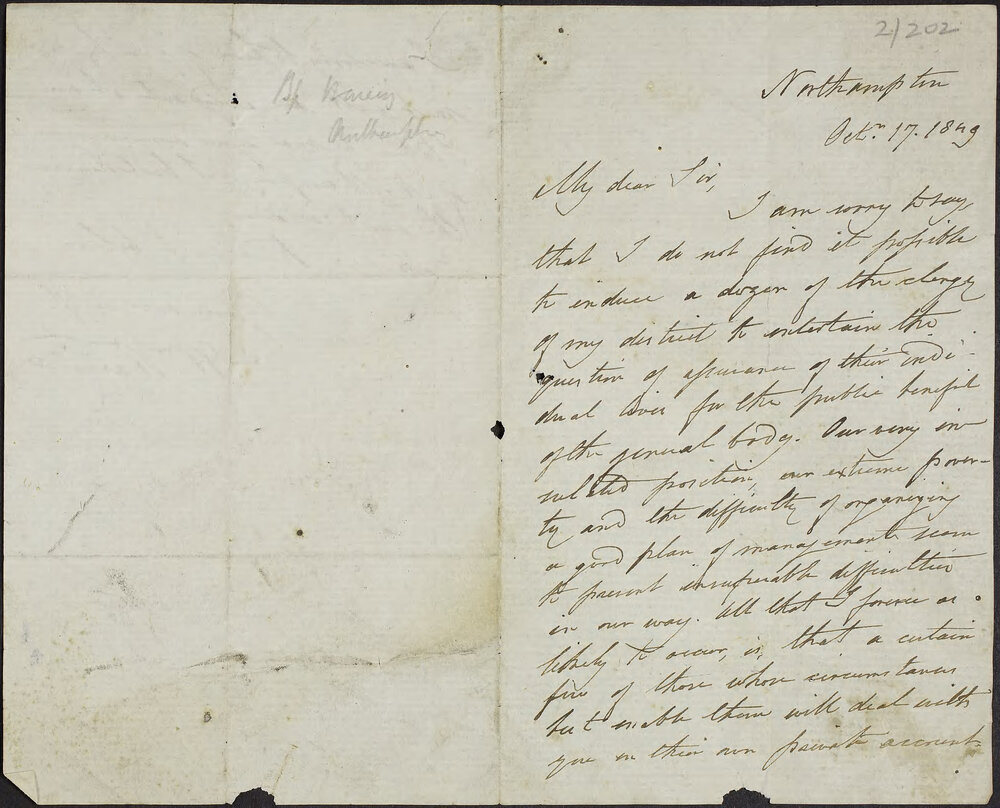 2/202
Bp Baring
Northampton
Octr. 17. 1849
My dear Sir,
I am sorry to say
that I do not find it possible
to induce a dozen of the clergy
of my district to entertain the
question of assurance of their indi-
dual lives for the public benefit
of the general body. Our very in
sulated position, our extreme pover-
ty and the difficulty of organizing
a good plan of management seem
to present insuperable difficulties
in our way. All that I foresee as
likely to occur, is, that a certain
few of those whose circumstances
best enable them will deal with
you on their own private account